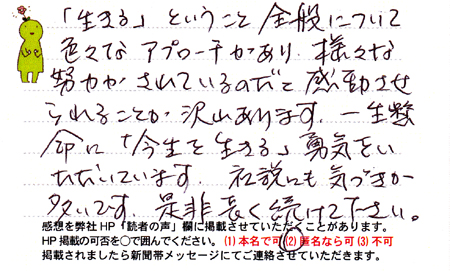 「生きる」ということ全般について
色々なアプローチがあり、様々な
努力がされているのだと感動させ
られることが沢山あります。一生懸
命に「今生を生きる」勇気をい
ただいています。社説にも気づきが
多いです。是非長く続けて下さい。
感想を弊社HP「読者の声」欄に掲載させていただくことがあります。
HP掲載の可否を○で囲んでください。(1)本名で可 (2)匿名なら可 (3)不可
掲載されましたら新聞帯メッセージにてご連絡させていただきます。